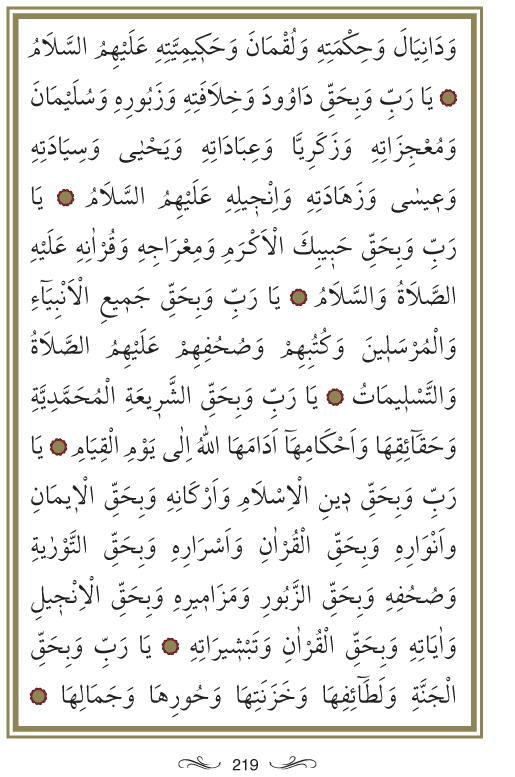 وَدَانِيَالَ وَحِكْمَتِهِ وَلُقْمَانَ وَحَكِيمِيَّتِهِ عَلَيْهِمُ السَّلَامُ
يَا رَبِّ وَبِحَقِّ دَاوُودَ وَخِلَافَتِهِ وَزَبُورِهِ وَسُلَيْمَانَ
وَمُعْجِزَاتِهِ وَزَكَرِيَّا وَعِبَادَاتِهِ وَيَحْيٰى وَسِيَادَتِهِ
وَعِيسٰى وَزَهَادَتِهِ وَاِنْجِيلِهِ عَلَيْهِمُ السَّلَامُ يَا
رَبِّ وَبِحَقِّ حَبِيبِكَ الْاَكْرَمِ وَمِعْرَاجِهِ وَقُرْاٰنِهِ عَلَيْهِ
الصَّلَاةُ وَالسَّلَامُ يَا رَبِّ وَبِحَقِّ جَمِيعِ الْاَنْبِيَآءِ
وَالْمُرْسَلِينَ وَكُتُبِهِمْ وَصُحُفِهِمْ عَلَيْهِمُ الصَّلَاةُ
وَالتَّسْلِيمَاتُ يَا رَبِّ وَبِحَقِّ الشَّرِيعَةِ الْمُحَمَّدِيَّةِ
وَحَقَآئِقِهَا وَاَحْكَامِهَآ اَدَامَهَا اللّٰهُ اِلٰى يَوْمِ الْقِيَامِ يَا
رَبِّ وَبِحَقِّ دِينِ الْاِسْلَامِ وَاَرْكَانِهِ وَبِحَقِّ الْاِيمَانِ
وَاَنْوَارِهِ وَبِحَقِّ الْقُرْاٰنِ وَاَسْرَارِهِ وَبِحَقِّ التَّوْرٰيةِ
وَصُحُفِهِ وَبِحَقِّ الزَّبُورِ وَمَزَامِيرِهِ وَبِحَقِّ الْاِنْجِيلِ
وَاٰيَاتِهِ وَبِحَقِّ الْقُرْاٰنِ وَتَبْشِيرَاتِهِ يَا رَبِّ وَبِحَقِّ
الْجَنَّةِ وَلَطَآئِفِهَا وَخَزَنَتِهَا وَحُورِهَا وَجَمَالِهَا
219